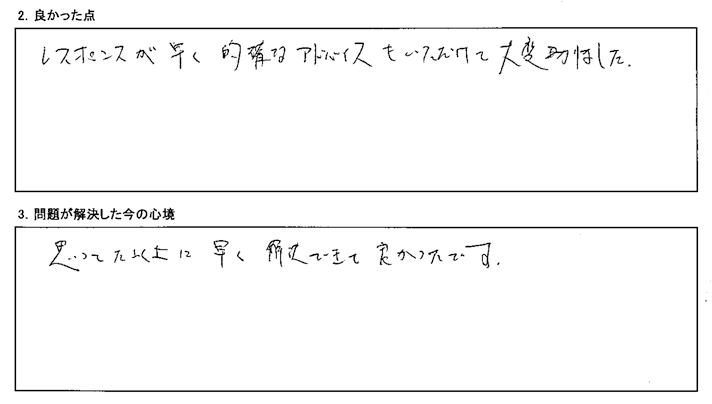 2. 良かった点
レスポンスが早く的確なアドバイスもいただけて大変助かりました.
3. 問題が解決した今の心境
思ってた以上に早く解決できて良かったです.